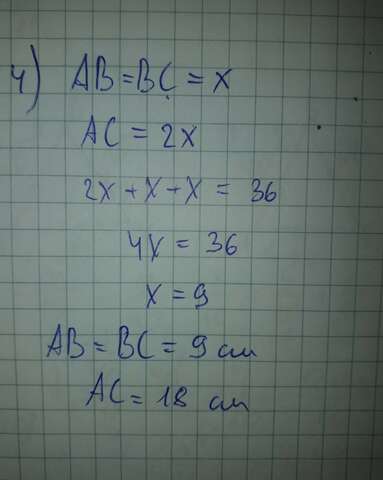 4) AB = BC = x
AC = 2x
2x + x + x = 36
4x = 36
x = 9
AB = BC = 9 см
AC = 18 см